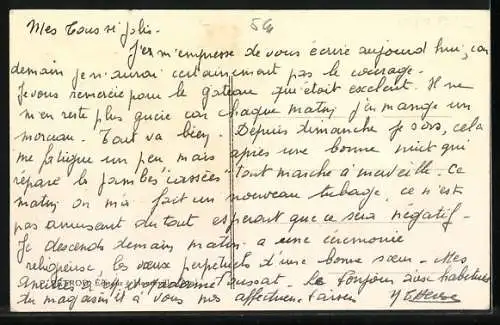 Mes Tous si jolis.
56
J'ai m'empresse de vous écrire aujourd'hui, car
demain je n'aurai certainement pas le courage.
Je vous remercie pour le gateau qui était excellent. Il ne
m'en reste plus guère car chaque matin j'en mange un
morceau. Tout va bien. Depuis dimanche je sors, cela
me fatigue un peu mais après une bonne nuit qui
répare les jambes "cassées" tout marche à merveille. Ce
matin on m'a fait un nouveau tubage, ce n'est
pas amusant du tout esperont que ce sera négatif.
Je descends demain matin a une cérémonie
religieuse, les vœux perpetuels d'une bonne sœur. Mes
amitiés à madame. Le bonjour aux habitués
du magasin et à vous mes affectueux baisers